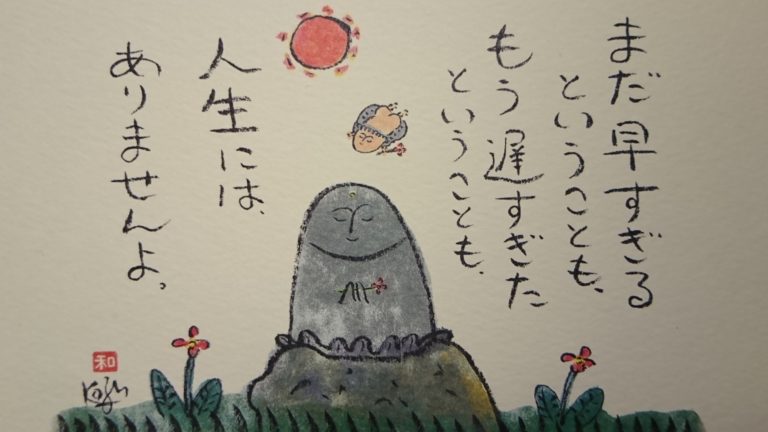 まだ早すぎる
ということも、
もう遅すぎた
ということも、
人生には、
ありませんよ。
和